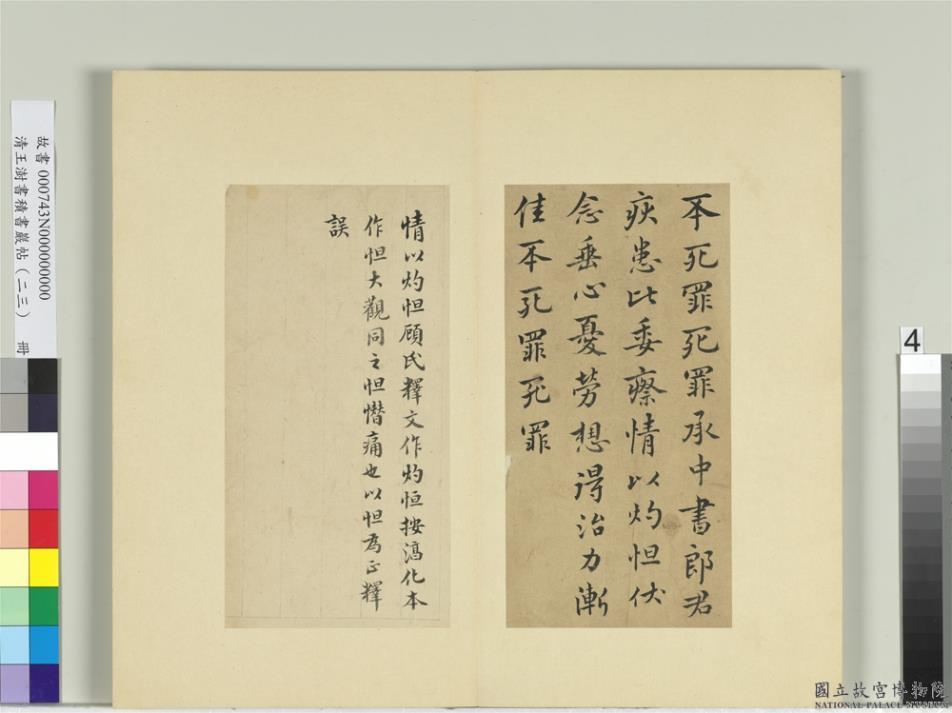 不死罪死罪承中書郎君
疾患比委瘵情以灼怛伏
念垂心憂勞想得治力漸
佳不死罪死罪
情以灼怛顧氏釋文作灼恒按淳化本
作怛大觀同之怛憯痛也以怛為正釋
誤
故書 000743N000000000
清王澍書積書巖帖(二三) 冊
4
國立故宮博物院
NATIONAL PALACE MUSEUM